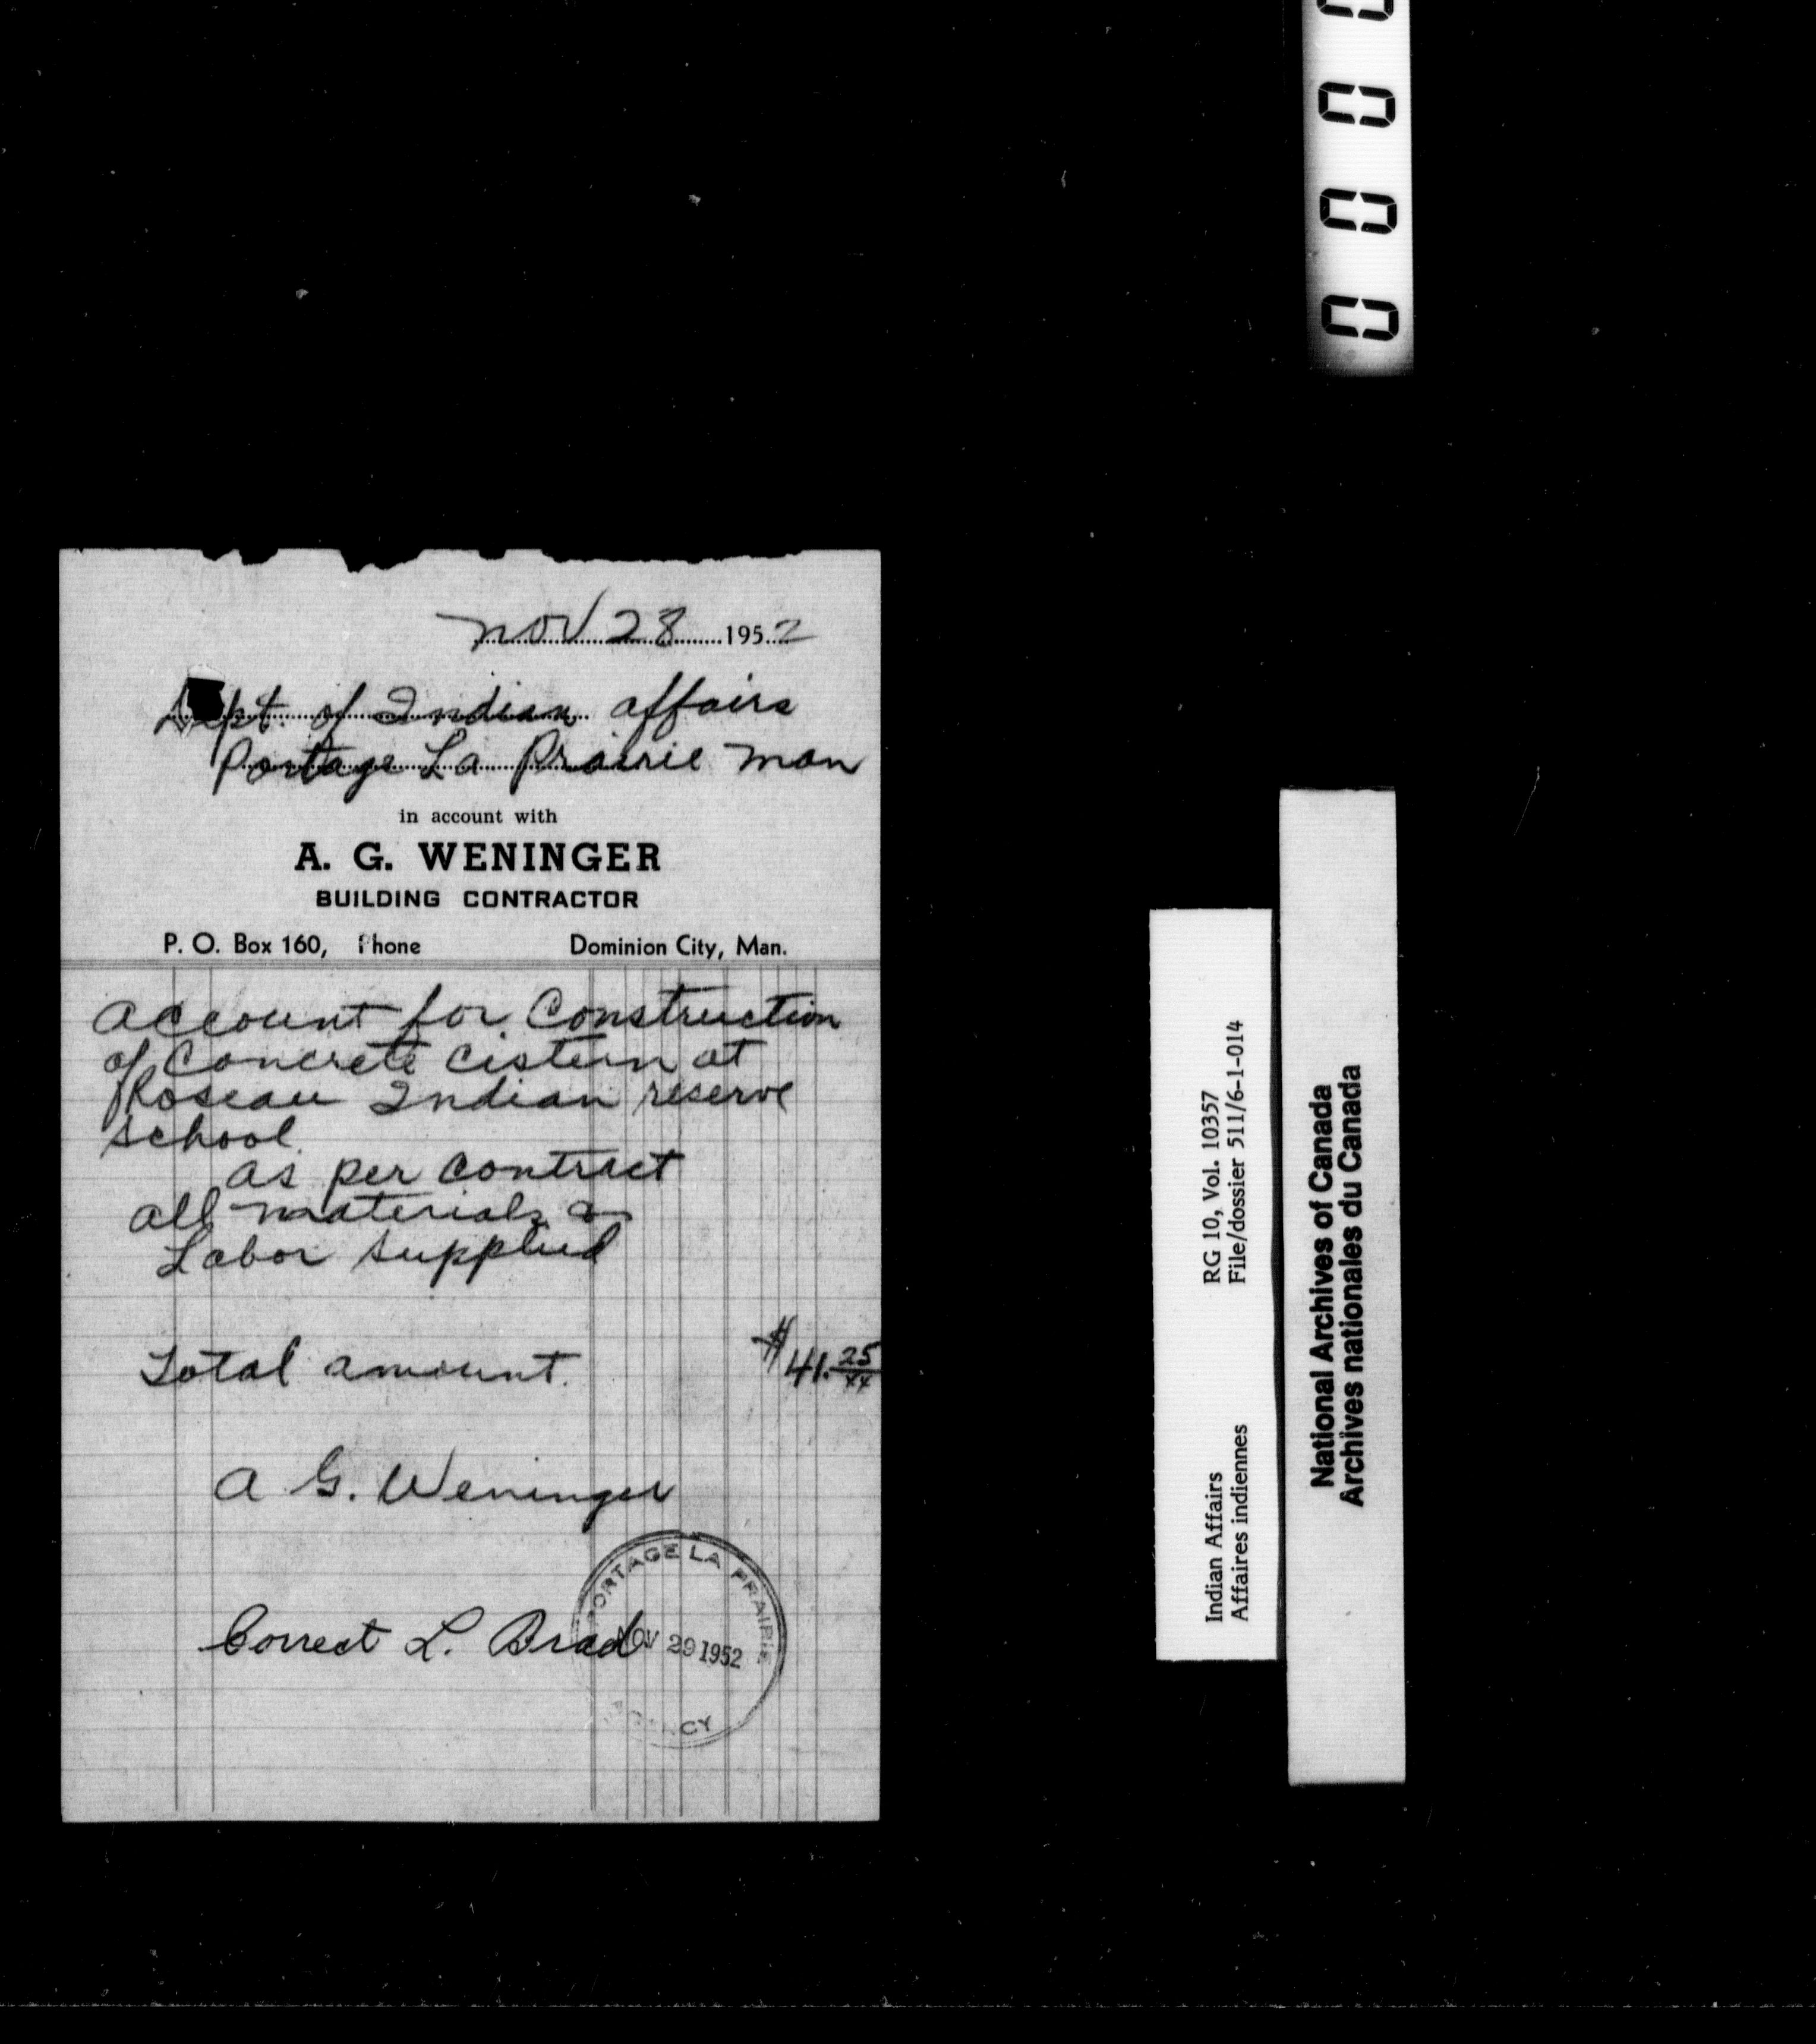 Nov 28 1952
Dept. of Indian affairs
Portage La Prairie Man
in account with
A. G. WENINGER
BUILDING CONTRACTOR
P. O. Box 160, Phone Dominion City, Man.
account for Construction
of Concrete cistern at
Roseau Indian reserve
school
as per contract
all materials &
Labor supplied
Total amount. $41.25/xx
A G. Weninger
Correct L. Brad
PORTAGE LA PRAIRIE
NOV 29 1952
AGENCY
Indian Affairs RG 10, Vol. 10357
Affaires indiennes File/dossier 511/6-1-014
National Archives of Canada
Archives nationales du Canada
0 0 0